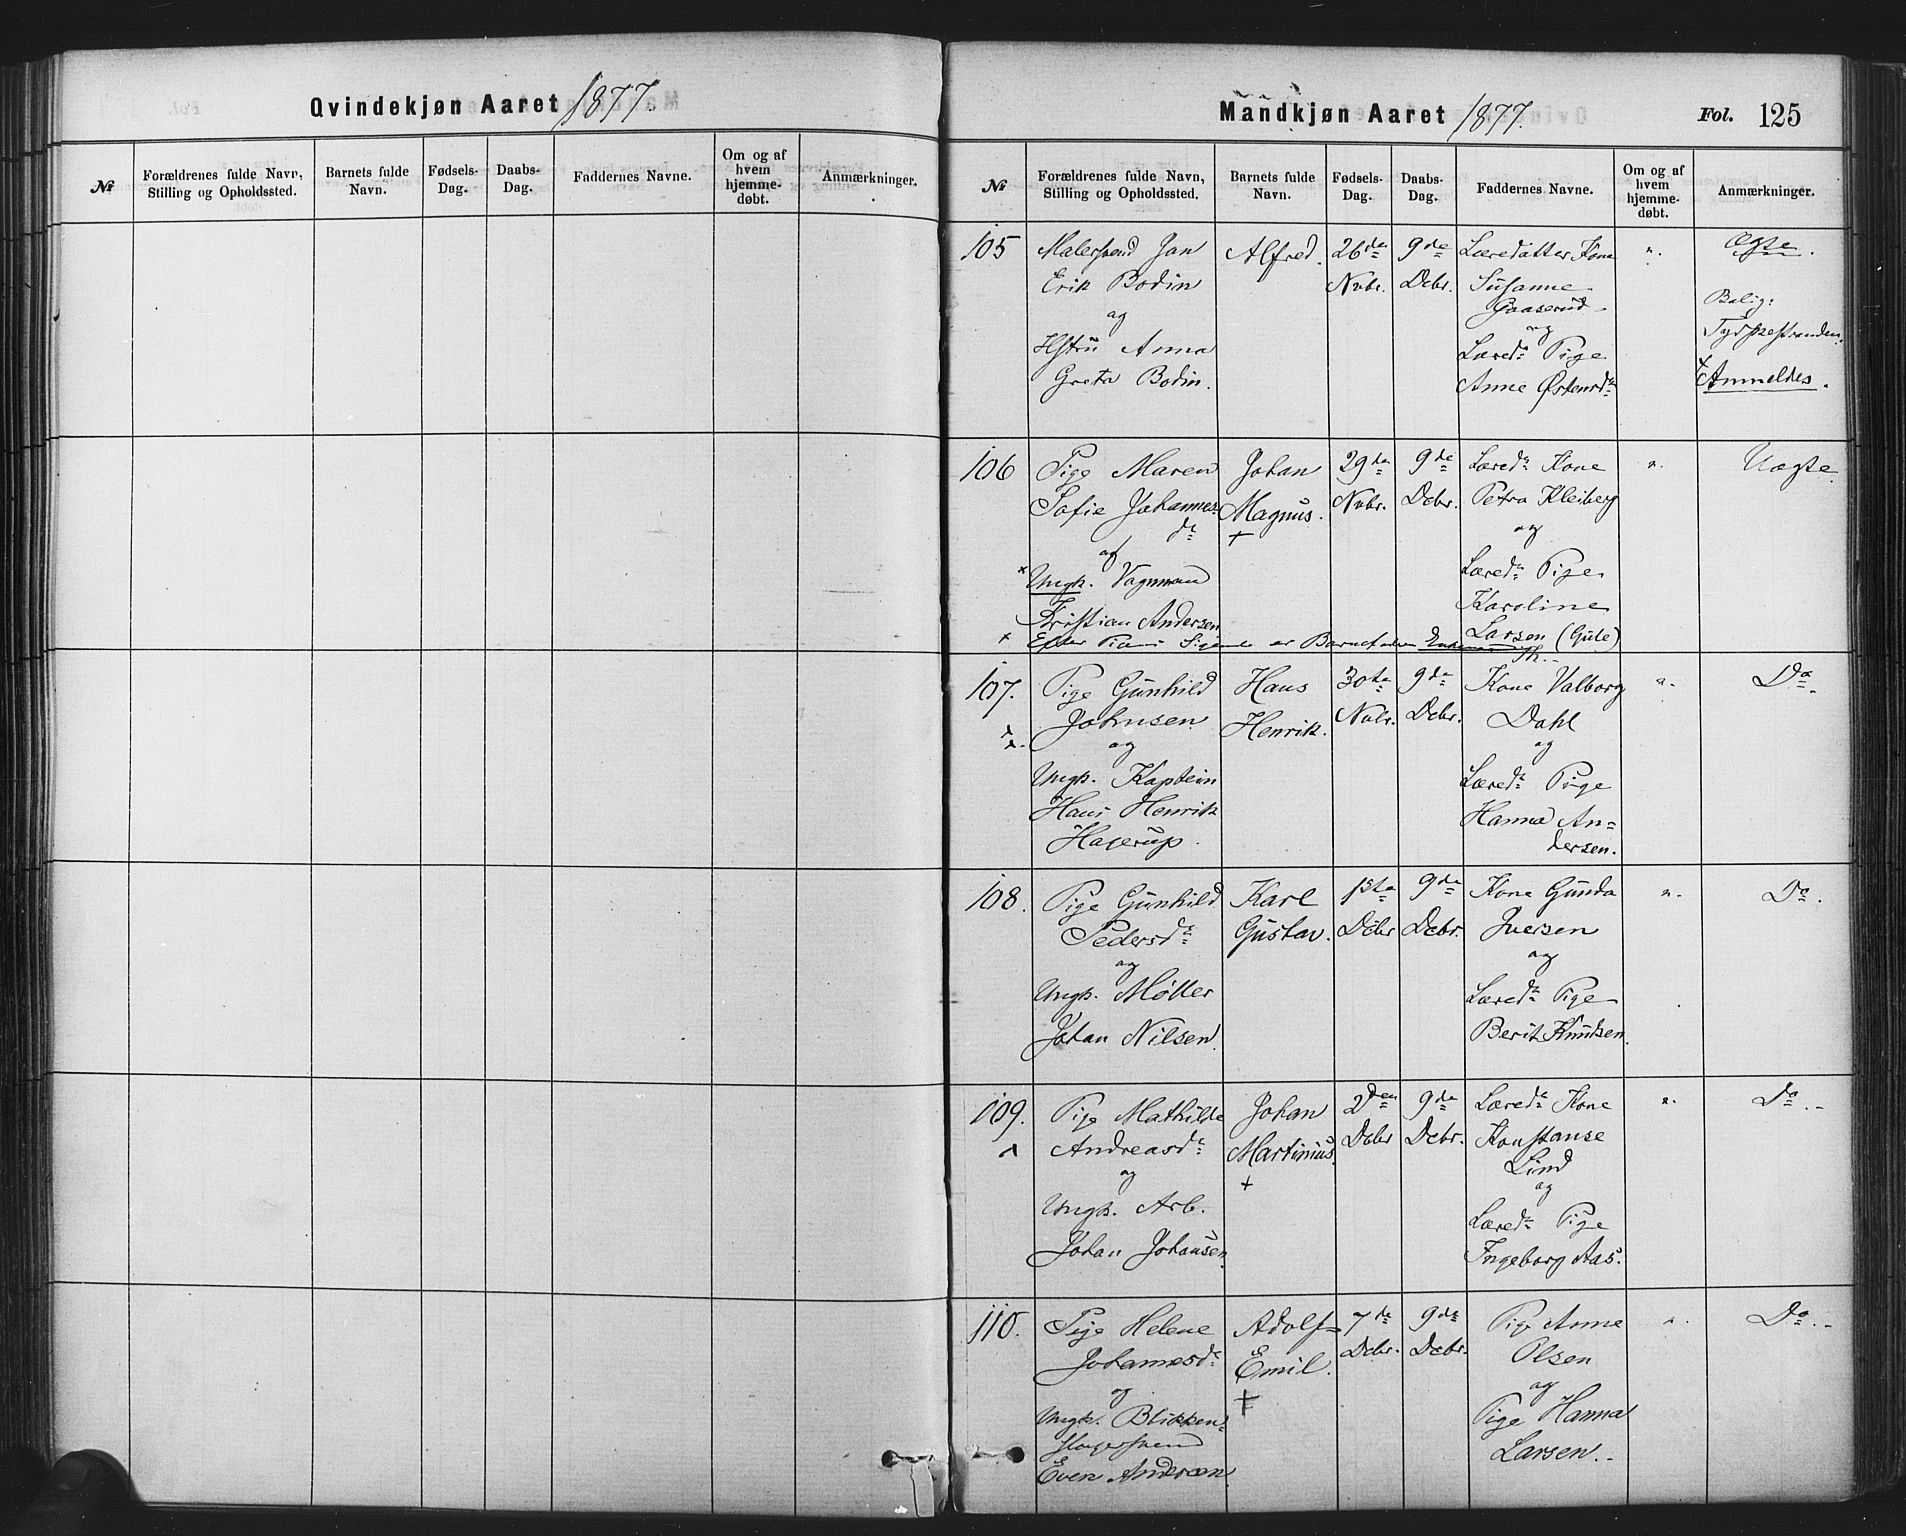 Qvindekjøn Aaret 1877.
№
Forældrenes fulde Navn, Stilling og Opholdssted.
Barnets fulde Navn.
Fødsels-Dag.
Daabs-Dag.
Faddernes Navne.
Om og af hvem hjemme-døbt.
Anmærkninger.
Mandkjøn Aaret 1877.
Fol. 125
№
Forældrenes fulde Navn, Stilling og Opholdssted.
Barnets fulde Navn.
Fødsels-Dag.
Daabs-Dag.
Faddernes Navne.
Om og af hvem hjemme-døbt.
Anmærkninger.
105
Malersvend Jan
Erik Bodin
og
Hstru Anna
Greta Bodin.
Alfred.
26de
Nvbr.
9de
Dcbr.
Læredatter Kone
Susanne
Gaaserud
og
Læreda Pige
Anne Østensda
"
Ægte.
Bolig:
Tydskestranden.
Anmeldes.
106
Pige Maren
Sofie Johannes
da
og
× Ungk. Vognmand
Kristian Andersen
Johan
Magnus.
+
29de
Nvbr.
9de
Dcbr.
Læreda Kone
Petra Kleiberg
og
Læreda Pige
Karoline
Larsen (Gule)
"
Uægte
× Efter Pigens Sigende er Barnefaderen
107.
Pige Gunhild
Johnsen
og
Ungk. Kaptein
Hans Henrik
Hagerup.
Hans
Henrik.
30te
Nvbr.
9de
Dcbr.
Kone Valborg
Dahl
og
Læreda Pige
Hanna An=
dersen.
"
Do
108.
Pige Gunhild
Pedersda
og
Ungk. Møller
Johan Nilsen.
Karl
Gustav.
1ste
Dcbr
9de
Dcbr.
Kone Gunda
Iversen
og
Læreda Pige
Berit Knudsen.
"
Do.
109.
Pige Mathilde
Andreasda
og
Ungk. Arb.
Johan Johansen
Johan
Martinius.
+
2den
Dcbr
9de
Dcbr.
Læreda Kone
Konstanse
Lind
og
Læreda Pige
Ingeborg Aas.
"
Do.-
110.
Pige Helene
Johannesda
og
Ungk. Blikken=
slagersvend
Even Andersen
Adolf=
Emil.
+
7de
Dcbr.
9de
Dcbr.
Pige Anne
Olsen
og
Pige Hanna
Larsen.
"
Do.-